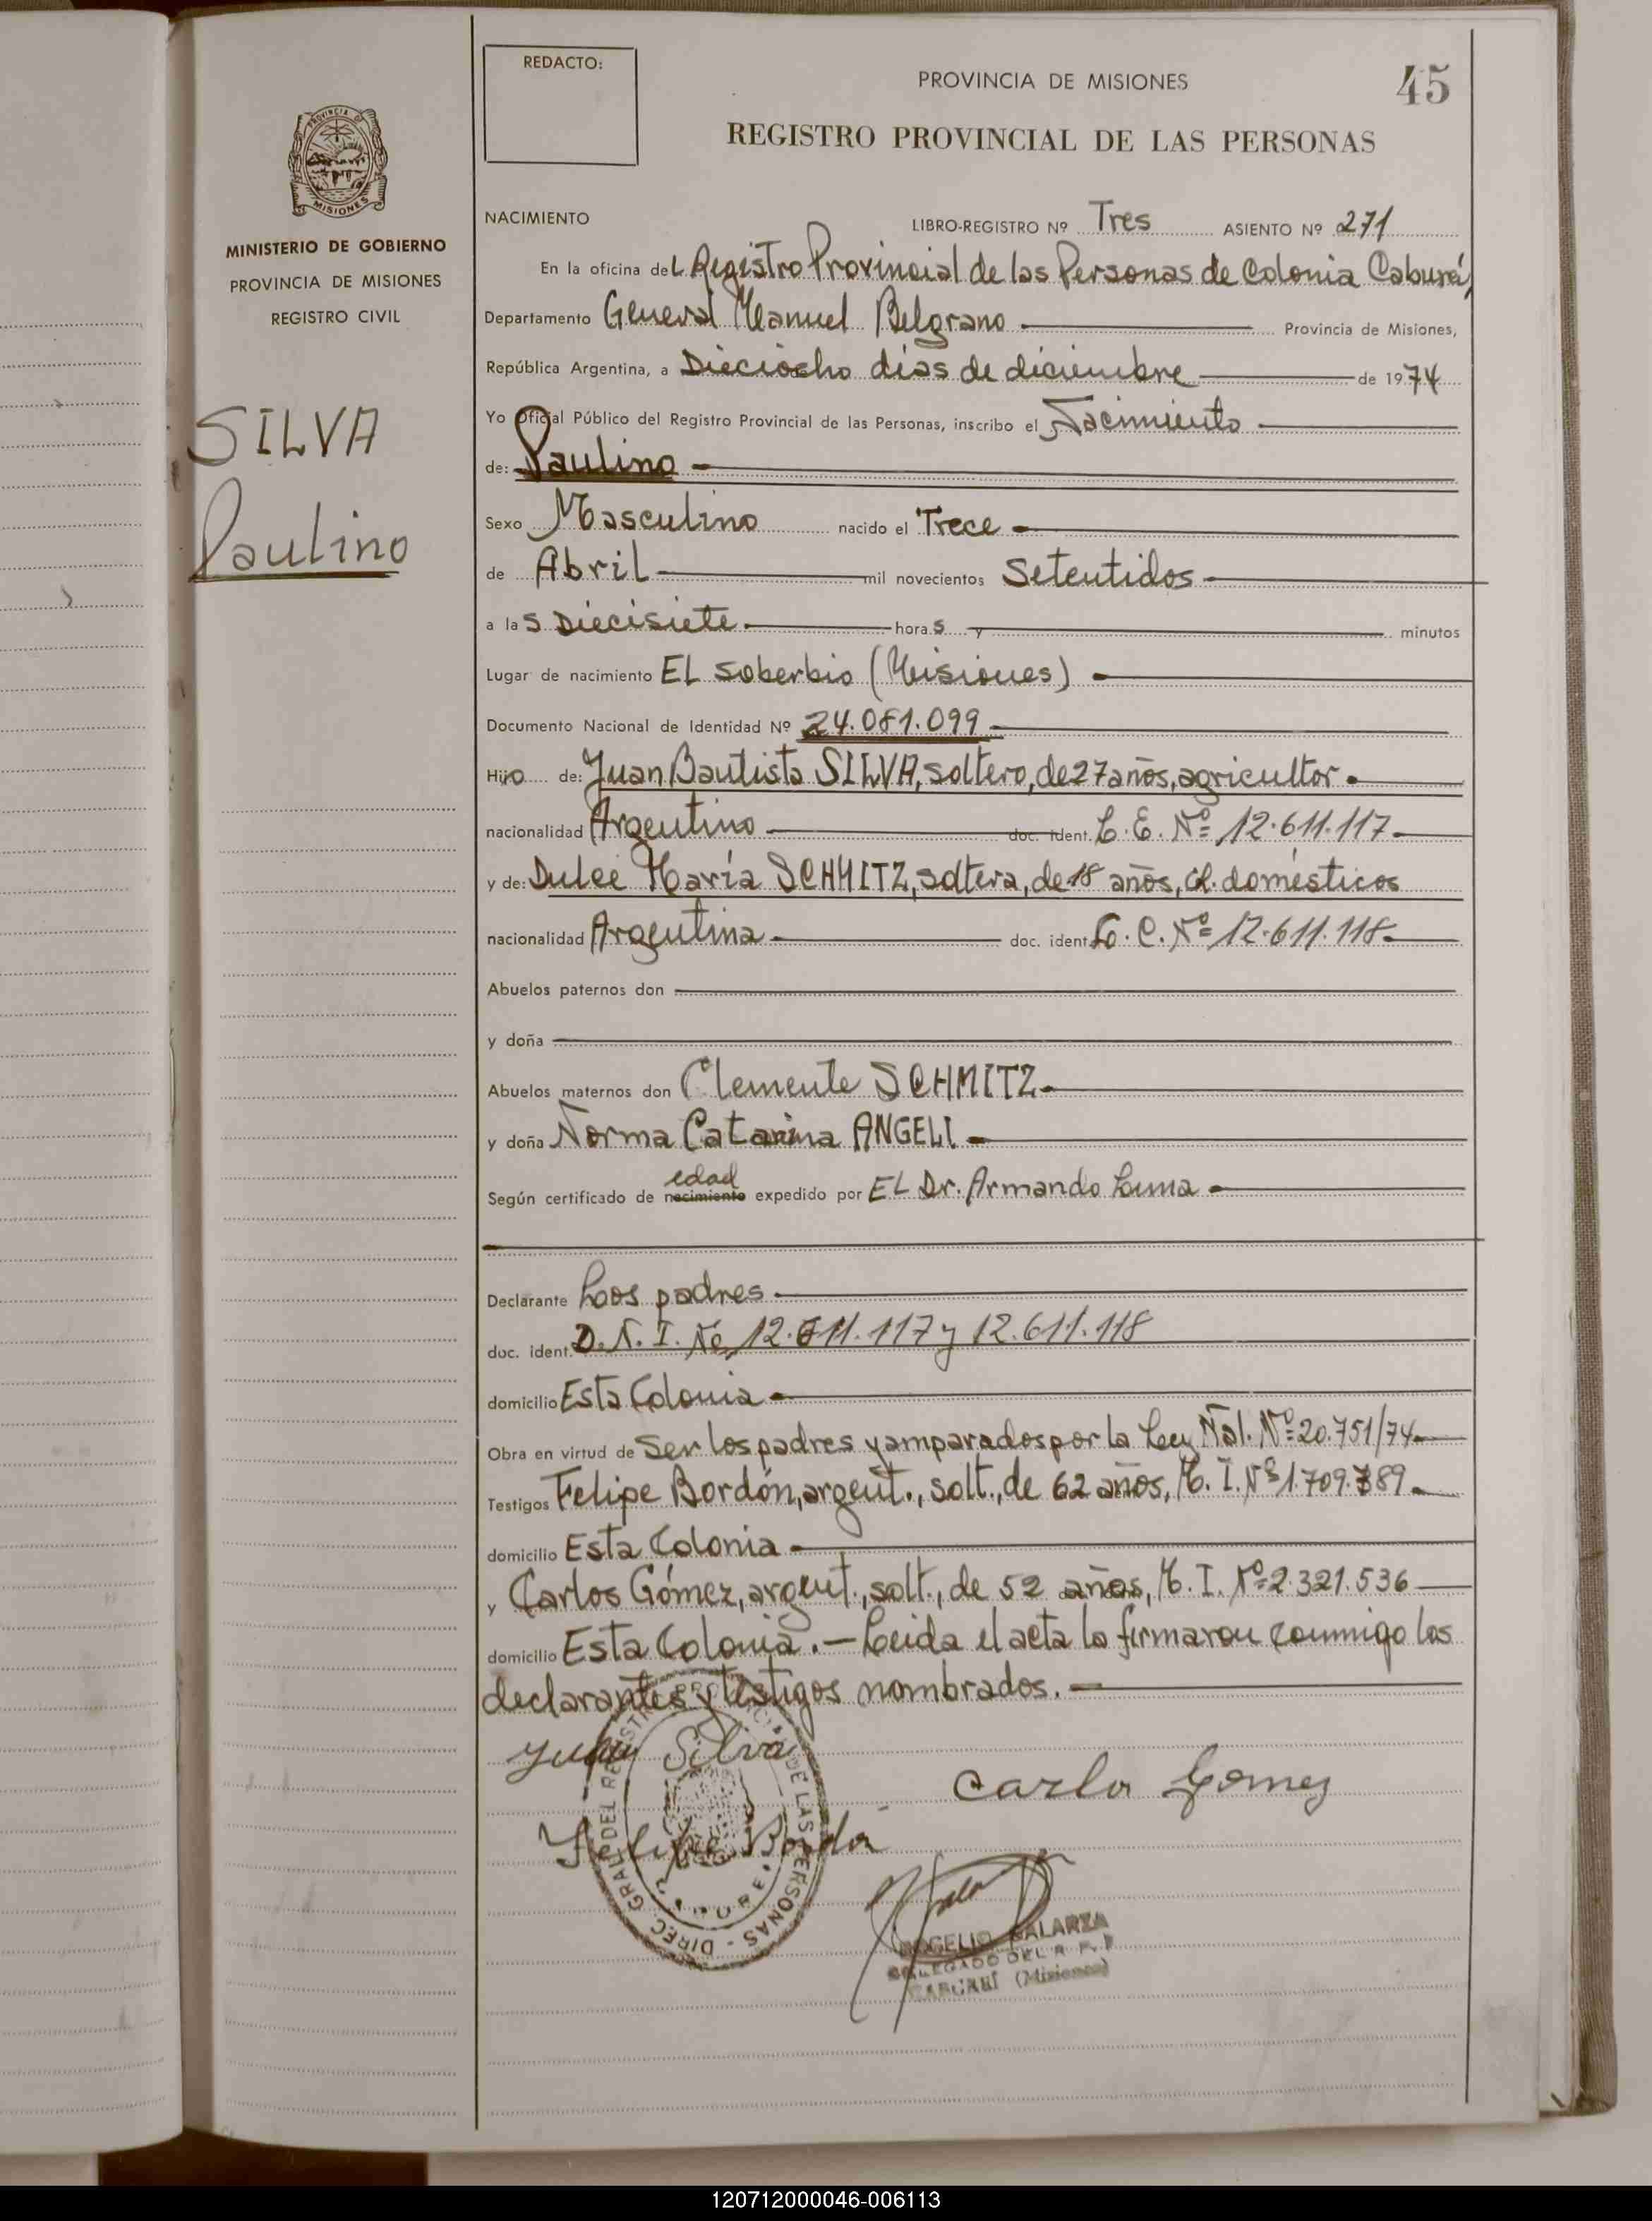 REDACTO:
PROVINCIA DE MISIONES
45
REGISTRO PROVINCIAL DE LAS PERSONAS
PROVINCIA DE
MISIONES
MINISTERIO DE GOBIERNO
PROVINCIA DE MISIONES
REGISTRO CIVIL
SILVA
Paulino
NACIMIENTO
LIBRO-REGISTRO Nº Tres ASIENTO Nº 271
En la oficina del Registro Provincial de las Personas de Colonia Caburéí,
Departamento General Manuel Belgrano Provincia de Misiones,
República Argentina, a Dieciocho días de diciembre de 1974
Yo Oficial Público del Registro Provincial de las Personas, inscribo el Nacimiento
de: Paulino
Sexo Masculino nacido el Trece
de Abril mil novecientos Setentidos
a las Diecisiete horas y minutos
Lugar de nacimiento EL Soberbio (Misiones)
Documento Nacional de Identidad Nº 24.081.099
Hijo de: Juan Bautista SILVA, soltero, de 27 años, agricultor
nacionalidad Argentino doc. ident. L. E. Nº 12.611.117
y de: Dulce María SCHMITZ, soltera, de 18 años, q. domésticos
nacionalidad Argentina doc. ident. L. C. Nº 12.611.118
Abuelos paternos don
y doña
Abuelos maternos don Clemente SCHMITZ
y doña Norma Catarina ANGELI
edad
Según certificado de nacimiento expedido por EL Dr. Armando Luna
Declarante Loos padres
doc. ident. D. N. I. No 12.611.117 y 12.611.118
domicilio Esta Colonia
Obra en virtud de Ser los padres y amparados por la Ley Nal. Nº 20.751/74
Testigos Felipe Bordón, argent., solt., de 62 años, M. I. Nº 1.709.789
domicilio Esta Colonia
y Carlos Gómez, argent., solt., de 52 años, M. I. Nº 2.321.536
domicilio Esta Colonia. – Leida el acta la firmaron conmigo los
declarantes y testigos nombrados.
Juan Silva
Carlos Gomez
Felipe Bordon
DIREC. GRAL. DEL REGISTRO PROVINCIAL DE LAS PERSONAS
ROGELIO GALARZA
DELEGADO DEL R. P. P.
CABUREI (Misiones)
120712000046-006113